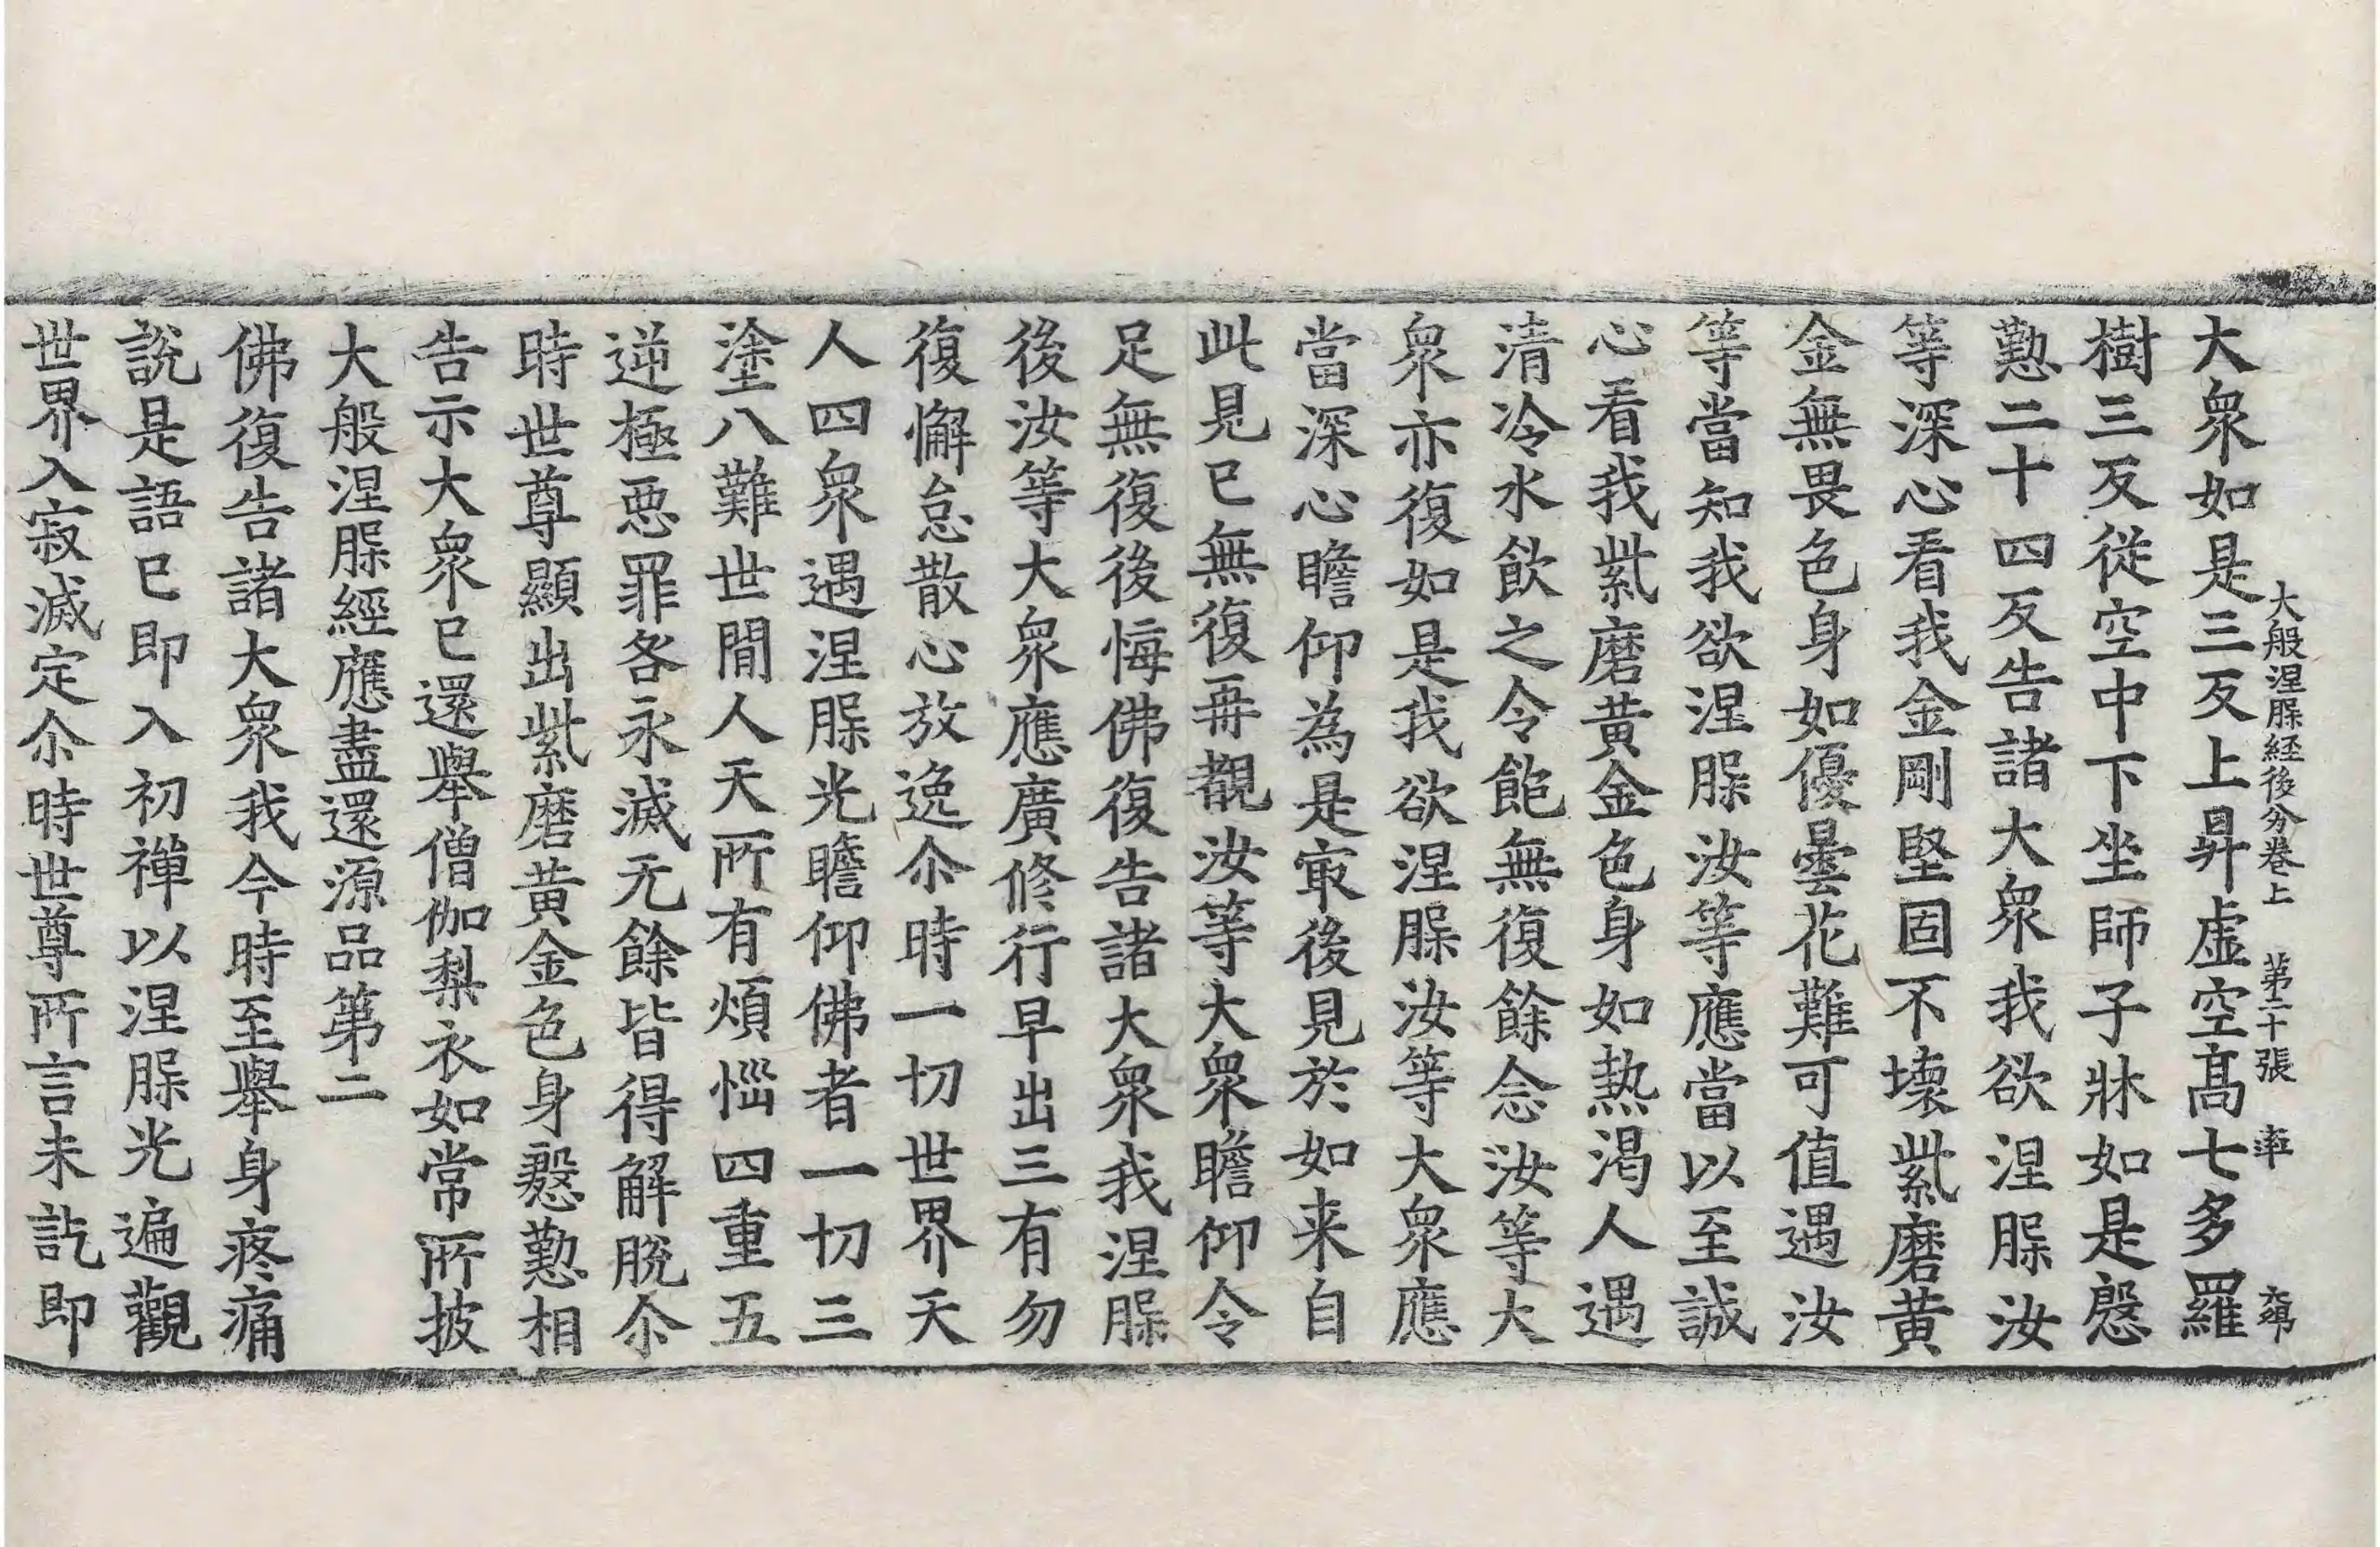 大般涅槃経後分卷上 第二十張 率
大衆如是三反上昇虛空髙七多羅
樹三反従空中下坐師子牀如是慇
懃二十四反告諸大衆我欲涅槃汝
等深心看我金剛堅固不壊紫磨黄
金無畏色身如優曇花難可值遇汝
等當知我欲涅槃汝等應當以至誠
心看我紫磨黄金色身如熱渇人遇
清冷水飲之令飽無復餘念汝等大
衆亦復如是我欲涅槃汝等大衆應
當深心瞻仰為是㝡後見於如来自
此見已無復再覩汝等大衆瞻仰令
足無復後悔佛復告諸大衆我涅槃
後汝等大衆應廣修行早出三有勿
復懈怠散心放逸尒時一切世界天
人四衆遇涅槃光瞻仰佛者一切三
塗八難世間人天所有煩惱四重五
逆極惡罪咎永滅无餘皆得解脫尒
時世尊顯出紫磨黄金色身慇懃相
告示大衆已還舉僧伽梨衣如常所披
大般涅槃經應盡還源品第二
佛復告諸大衆我今時至舉身疼痛
說是語已即入初禪以涅槃光遍觀
世界入寂滅定尒時世尊所言未訖即